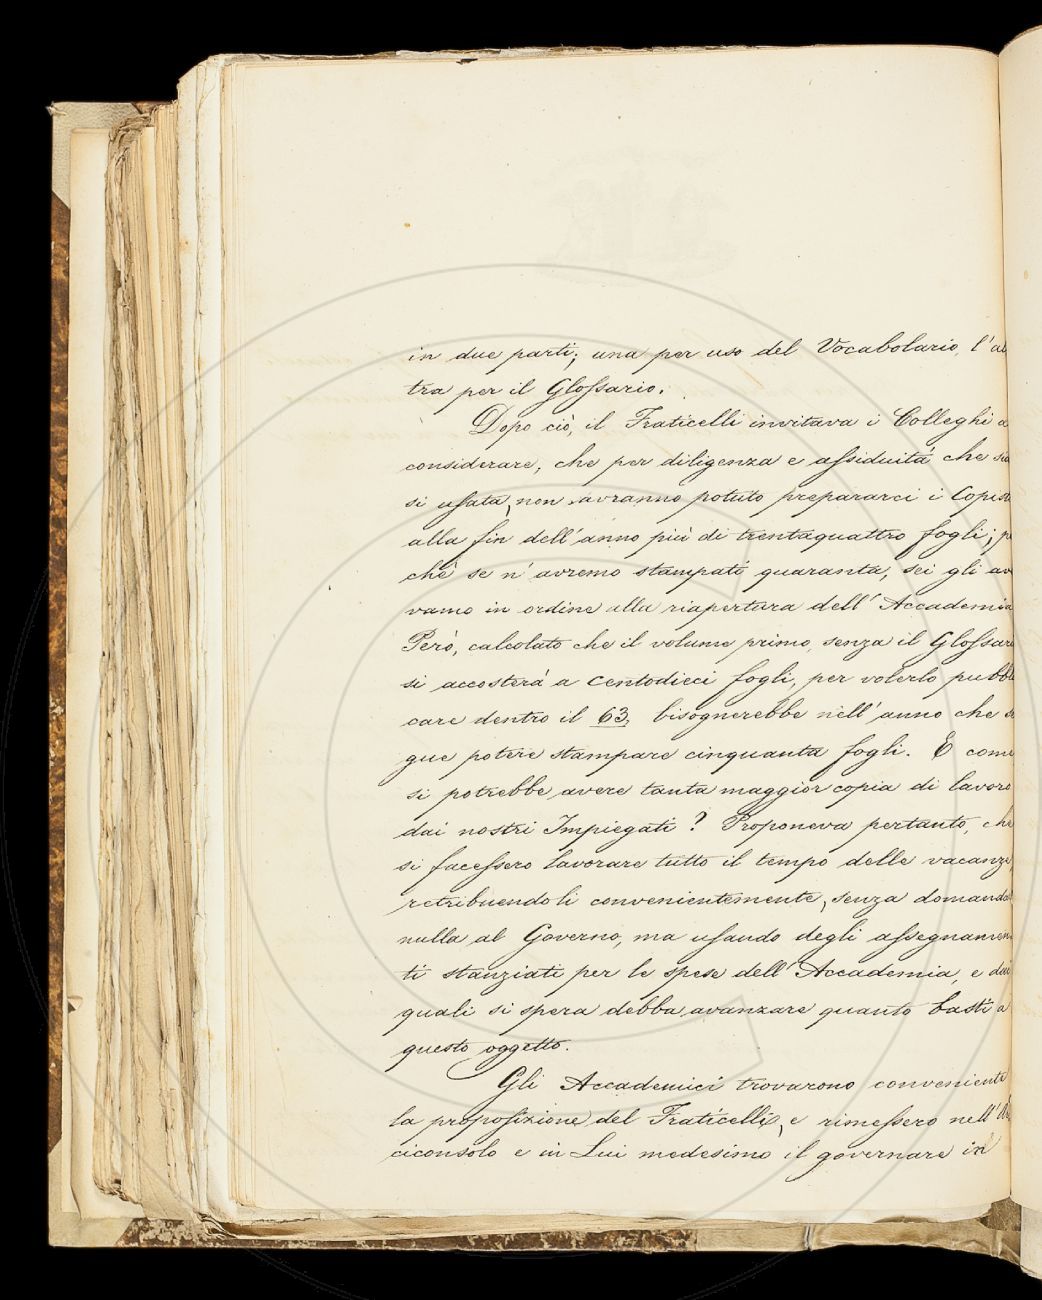 in due parti; una per uso del Vocabolario, l'al
tra per il Glossario.
Dopo ciò, il Fraticelli invitava i Colleghi a
considerare, che per diligenza e assiduità che sia
si usata, non avranno potuto prepararci i Copisti
alla fin dell'anno più di trentaquattro fogli; per
chè se n'avremo stampati quaranta, sei gli ave
vamo in ordine alla riapertura dell'Accademia.
Però, calcolato che il volume primo, senza il Glossario
si accosterà a centodieci fogli, per volerlo pubbli
care dentro il 63, bisognerebbe nell'anno che se
gue potere stampare cinquanta fogli. E come
si potrebbe avere tanta maggior copia di lavoro
dai nostri Impiegati? Proponeva pertanto, che
si facessero lavorare tutto il tempo delle vacanze,
retribuendoli convenientemente, senza domandar
nulla al Governo, ma usando degli assegnamen
ti stanziati per le spese dell'Accademia, e dai
quali si spera debba avanzare quanto basti a
questo oggetto.
Gli Accademici trovarono conveniente
la proposizione del Fraticelli, e rimessero nell'Ar
ciconsolo e in Lui medesimo il governare in